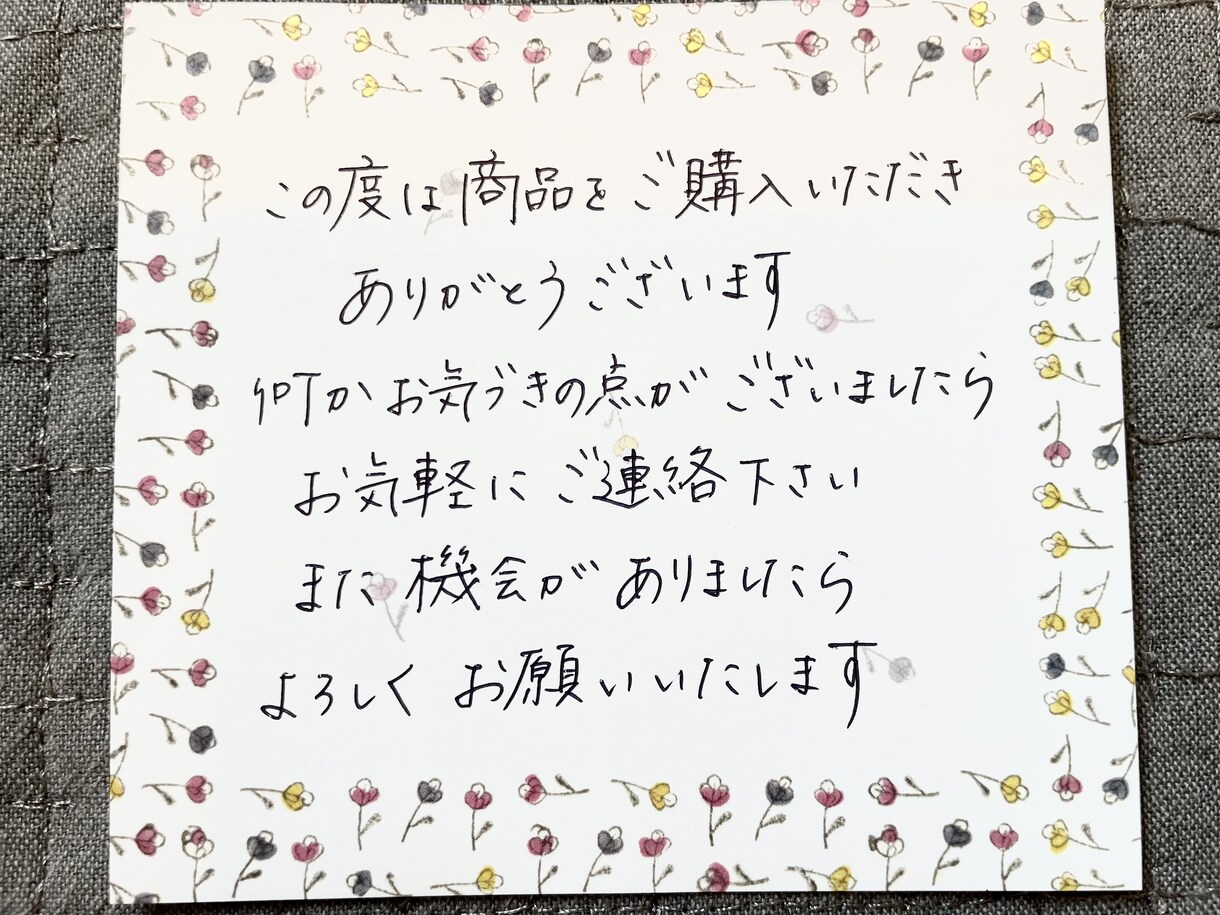 この度は商品をご購入いただき
ありがとうございます
何かお気づきの点がございましたら
お気軽にご連絡下さい
また機会がありましたら
よろしくお願いいたします